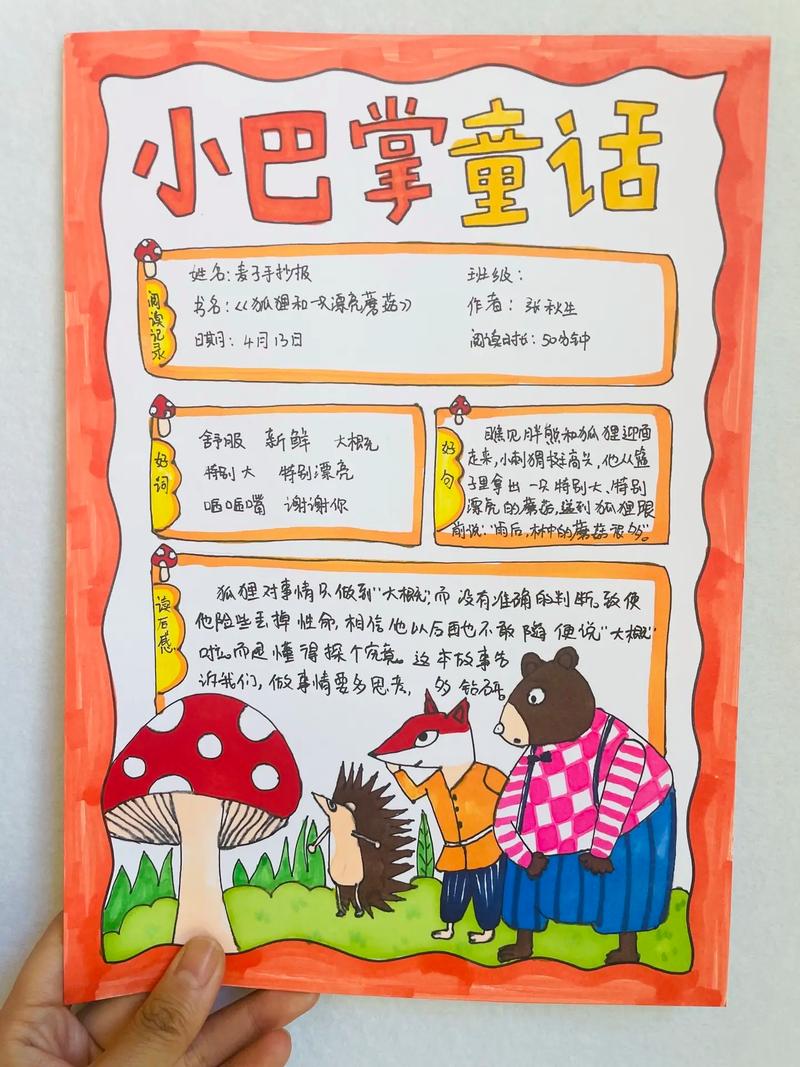 小巴掌童话
阅读记录
姓名:麦子手抄报
班级:
书名:《狐狸和一只漂亮蘑菇》
作者:张秋生
日期:4月13日
阅读时长:50分钟
好词
舒服 新鲜 大概
特别大 特别漂亮
咂咂嘴 谢谢你
好句
瞧见胖熊和狐狸迎面
走来,小刺猬挺高兴,他从篮
子里拿出一只特别大、特别
漂亮的蘑菇,送到狐狸跟
前说:"雨后,林中的蘑菇很多"。
读后感
狐狸对事情只做到"大概",而没有准确的判断。致使
他险些丢掉性命,相信他以后再也不敢随便说"大概"
啦。而是懂得探个究竟。这本故事告
诉我们,做事情要多思考,多钻研。